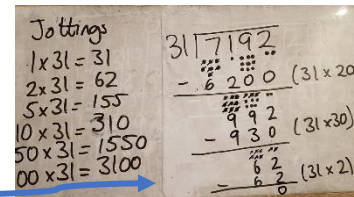 Jottings
1x31 = 31
2x31 = 62
5x31 = 155
10 x31 = 310
50x31 = 1550
00 x31 = 3100
31 7192
- 6200 (31x20
992
- 930 (31x30)
62
- 62 (31x2)
0